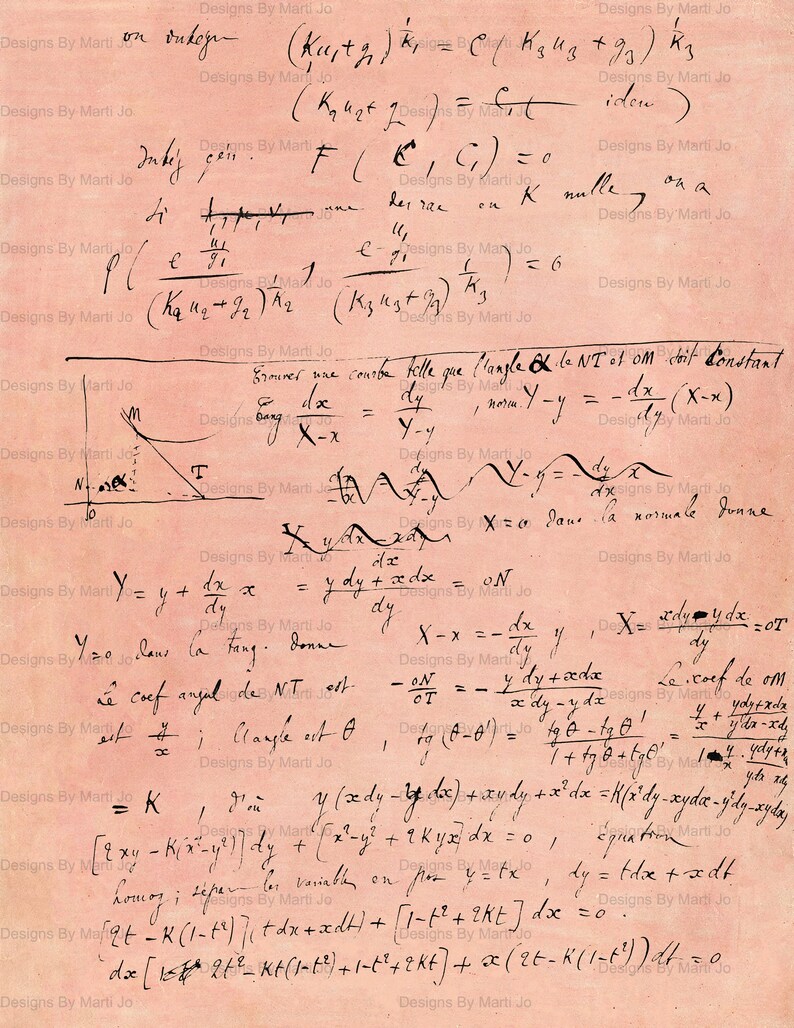 on intègre (K₁u₁+g₁)^{1/K₁} = C (K₃u₃ + g₃)^{1/K₃}
(K₂u₂+g₂) = C₁( idem )
Intég gén. F ( C , C₁) = 0
Si une des rac ou K nulle, on a
φ ( e^{u₁/g₁} / (K₂u₂+g₂)^{1/K₂} , e^{u₁/g₁} / (K₃u₃+g₃)^{1/K₃} ) = 0
Trouver une courbe telle que l'angle α de NT et OM soit Constant
Tang dx/(X-x) = dy/(Y-y) , norm. Y-y = -dx/dy (X-x)
M
N α T
O
Y-y = -dy/dx x
X = (y dx - xdy)/dx X=0 dans la normale donne
Y = y + dx/dy x = (y dy + x dx)/dy = ON
Y=0 dans la tang. donne X-x = -dx/dy y , X = (xdy - y dx)/dy = OT
Le coef angul de NT est -ON/OT = - (y dy + xdx)/(x dy - ydx) Le coef de OM
est y/x ; l'angle est θ , tg (θ-θ') = (tg θ - tg θ')/(1 + tg θ + tg θ') = (y/x + (ydy+xdx)/(ydx-xdy))/(1 + y/x · (ydy+x)/(ydx xdy))
= K , d'où y (x dy - y dx) + xy dy + x² dx = K(x²dy - xydx - y²dy - xydx)
[2xy - K(x²-y²)] dy + [x²-y² + 2Kyx] dx = 0 , équation
homog ; séparer les variables en pos y = tx , dy = tdx + xdt
[2t - K (1-t²)] (t dx + xdt) + [1-t² + 2Kt] dx = 0 .
dx [2t² - Kt(1-t²) + 1-t² + 2Kt] + x (2t - K(1-t²)) dt = 0
Designs By Marti Jo